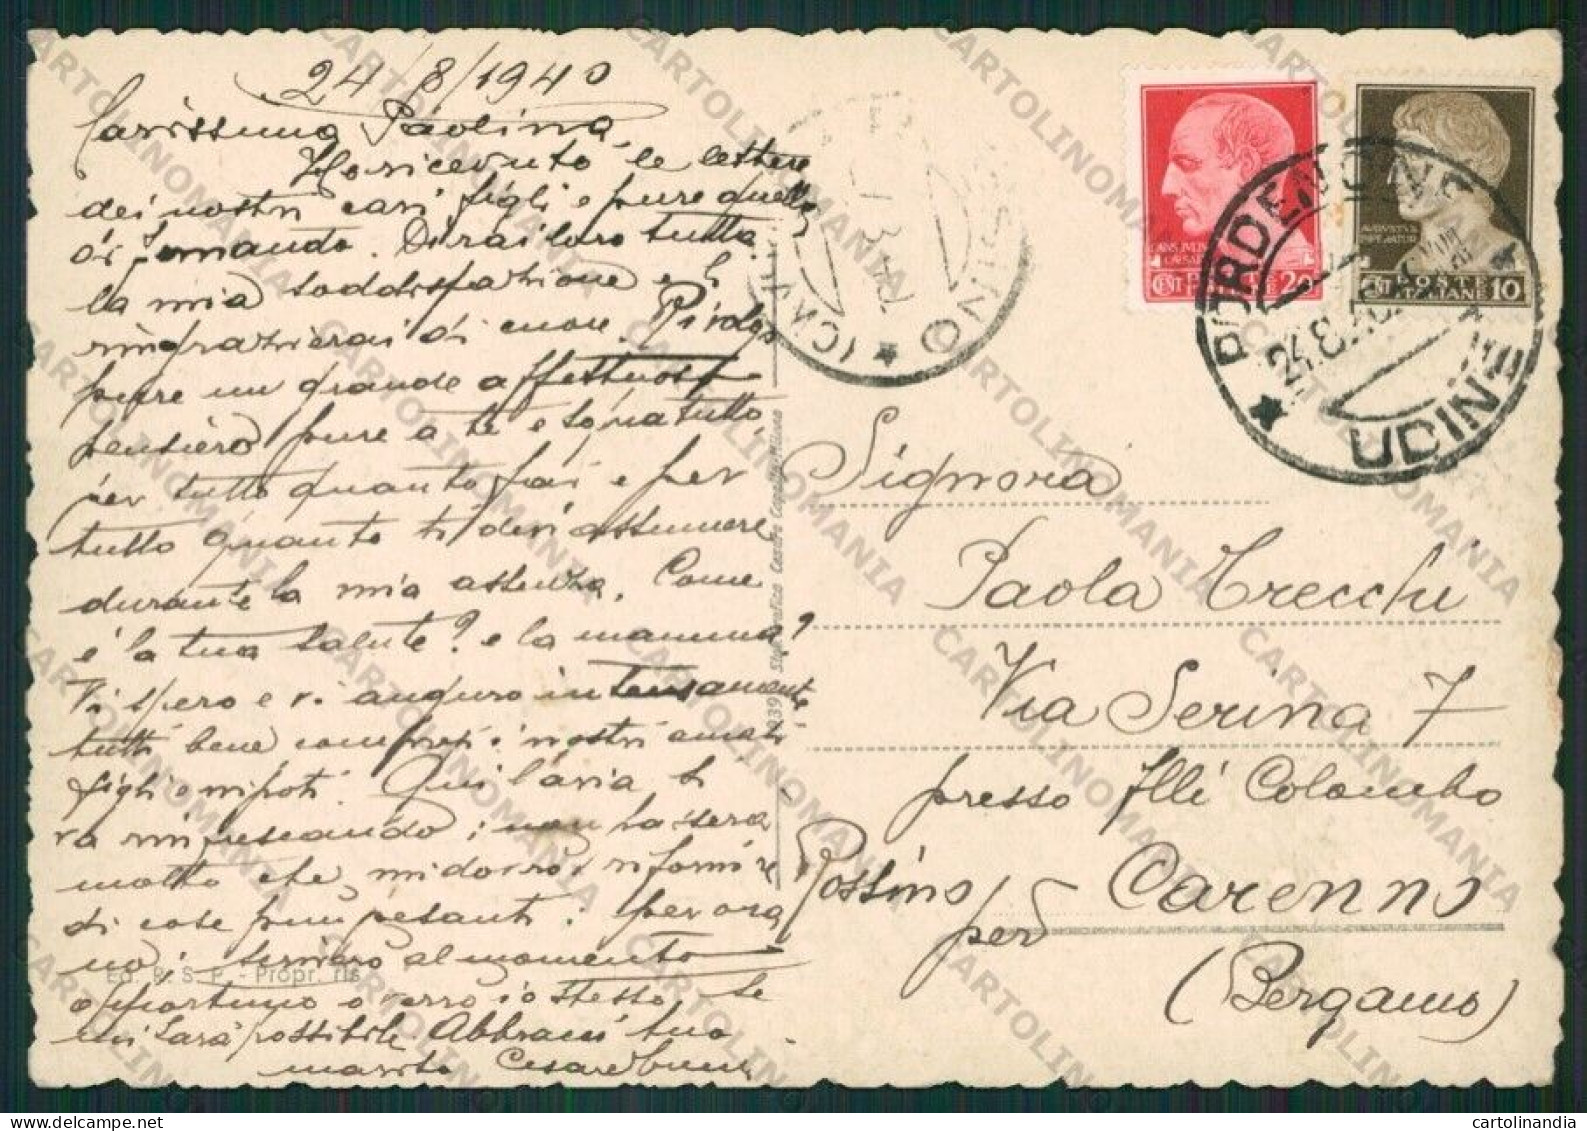 24/8/1940
Carissima Paolina,
Ho ricevuto le lettere
dei nostri cari figli e pure quella
di Fernando. Dirai loro tutta
la mia soddisfazione e li
ringrazierai di cuore. Rivolgo
pure un grande affettuoso
pensiero pure a te e sopratutto,
per tutto quanto fai e per
tutto quanto ti devi assumere
durante la mia assenza. Come
è la tua salute? e la mamma?
Vi spero e vi auguro intensamente
tutti bene compresi i nostri amati
figli e nipoti. Qui l'aria si
va rinfrescando; non la sera
molto che mi dovrò rifornire
di cose più pesanti: per ora
no; scriverò al momento
opportuno o verrò io stesso, se
mi sarà possibile. Abbracci tuo
marito Cesare
Ed. P. S. P. - Propr. ris
Signora
Paola Trecchi
Via Serina 7
presso Flli Colombo
Rossino per Carenno
(Bergamo)
CENT POSTE ITALIANE 20
AVGVSTVS IMPERATOR
CENT POSTE ITALIANE 10
PORDENONE
24.8.40
UDINE
CARTOLINOMANIA
cartolinandia